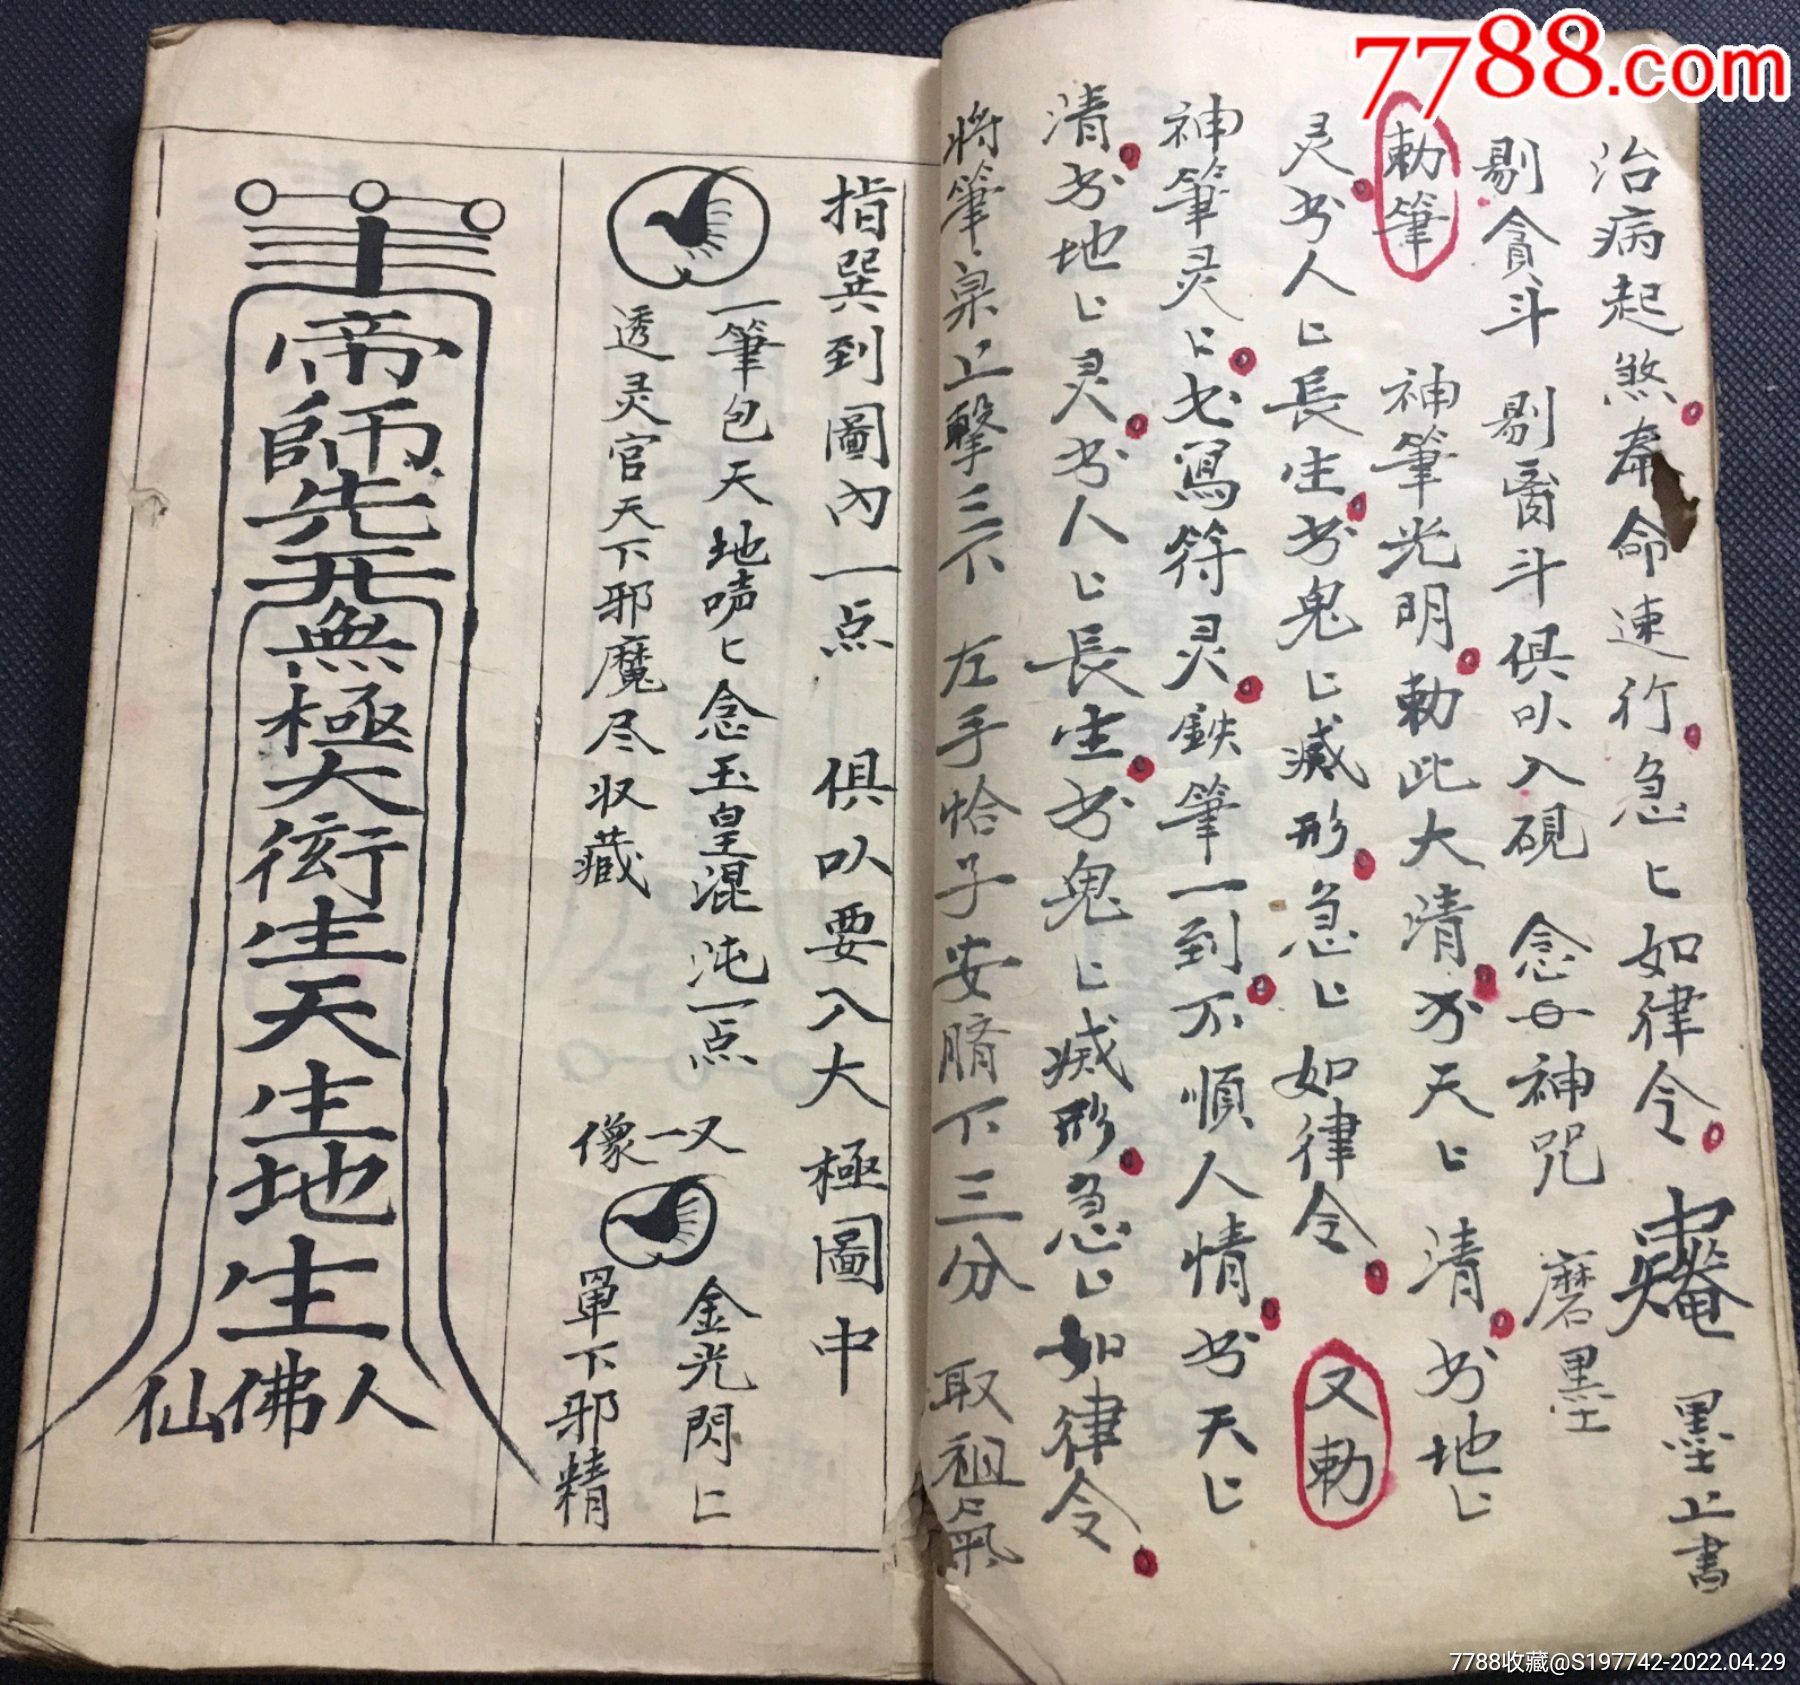 7788.com
治病起煞奉命速行急匕如律令 墨上書
剔貪斗 剔 斗俱以入硯 念 神咒 磨墨
勅筆 神筆光明勅此大清 天匕 清 地匕
灵 人匕長生 鬼匕藏形急匕如律令 又勅
神筆灵匕 寫符灵 鉄筆一到不順人情 天匕
清 地匕灵 人匕長生 鬼匕藏形急匕如律令
將筆桌上擊三下 左手恰子安臍下三分 取祖氣
指巽到圖內一点 俱以要入大極圖中
一筆包天地 匕念玉皇混沌一点
透灵官天下邪魔尽收藏
又一像
金光閃匕
罩下邪精
帝師先开無極大衍生天生地生
人佛仙
7788收藏@S197742-2022.04.29